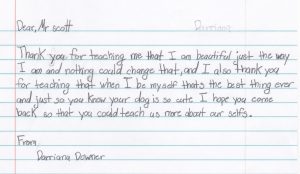 Dear, Mr scott
Darriana
Thank you for teaching me that I am beautiful just the way
I am and nothing could change that, and I also thank you
for teaching that when I be myself thats the best thing ever
and just so you know your dog is so cute I hope you come
back so that you could teach us more about our selfs.
From
Darriana Downer